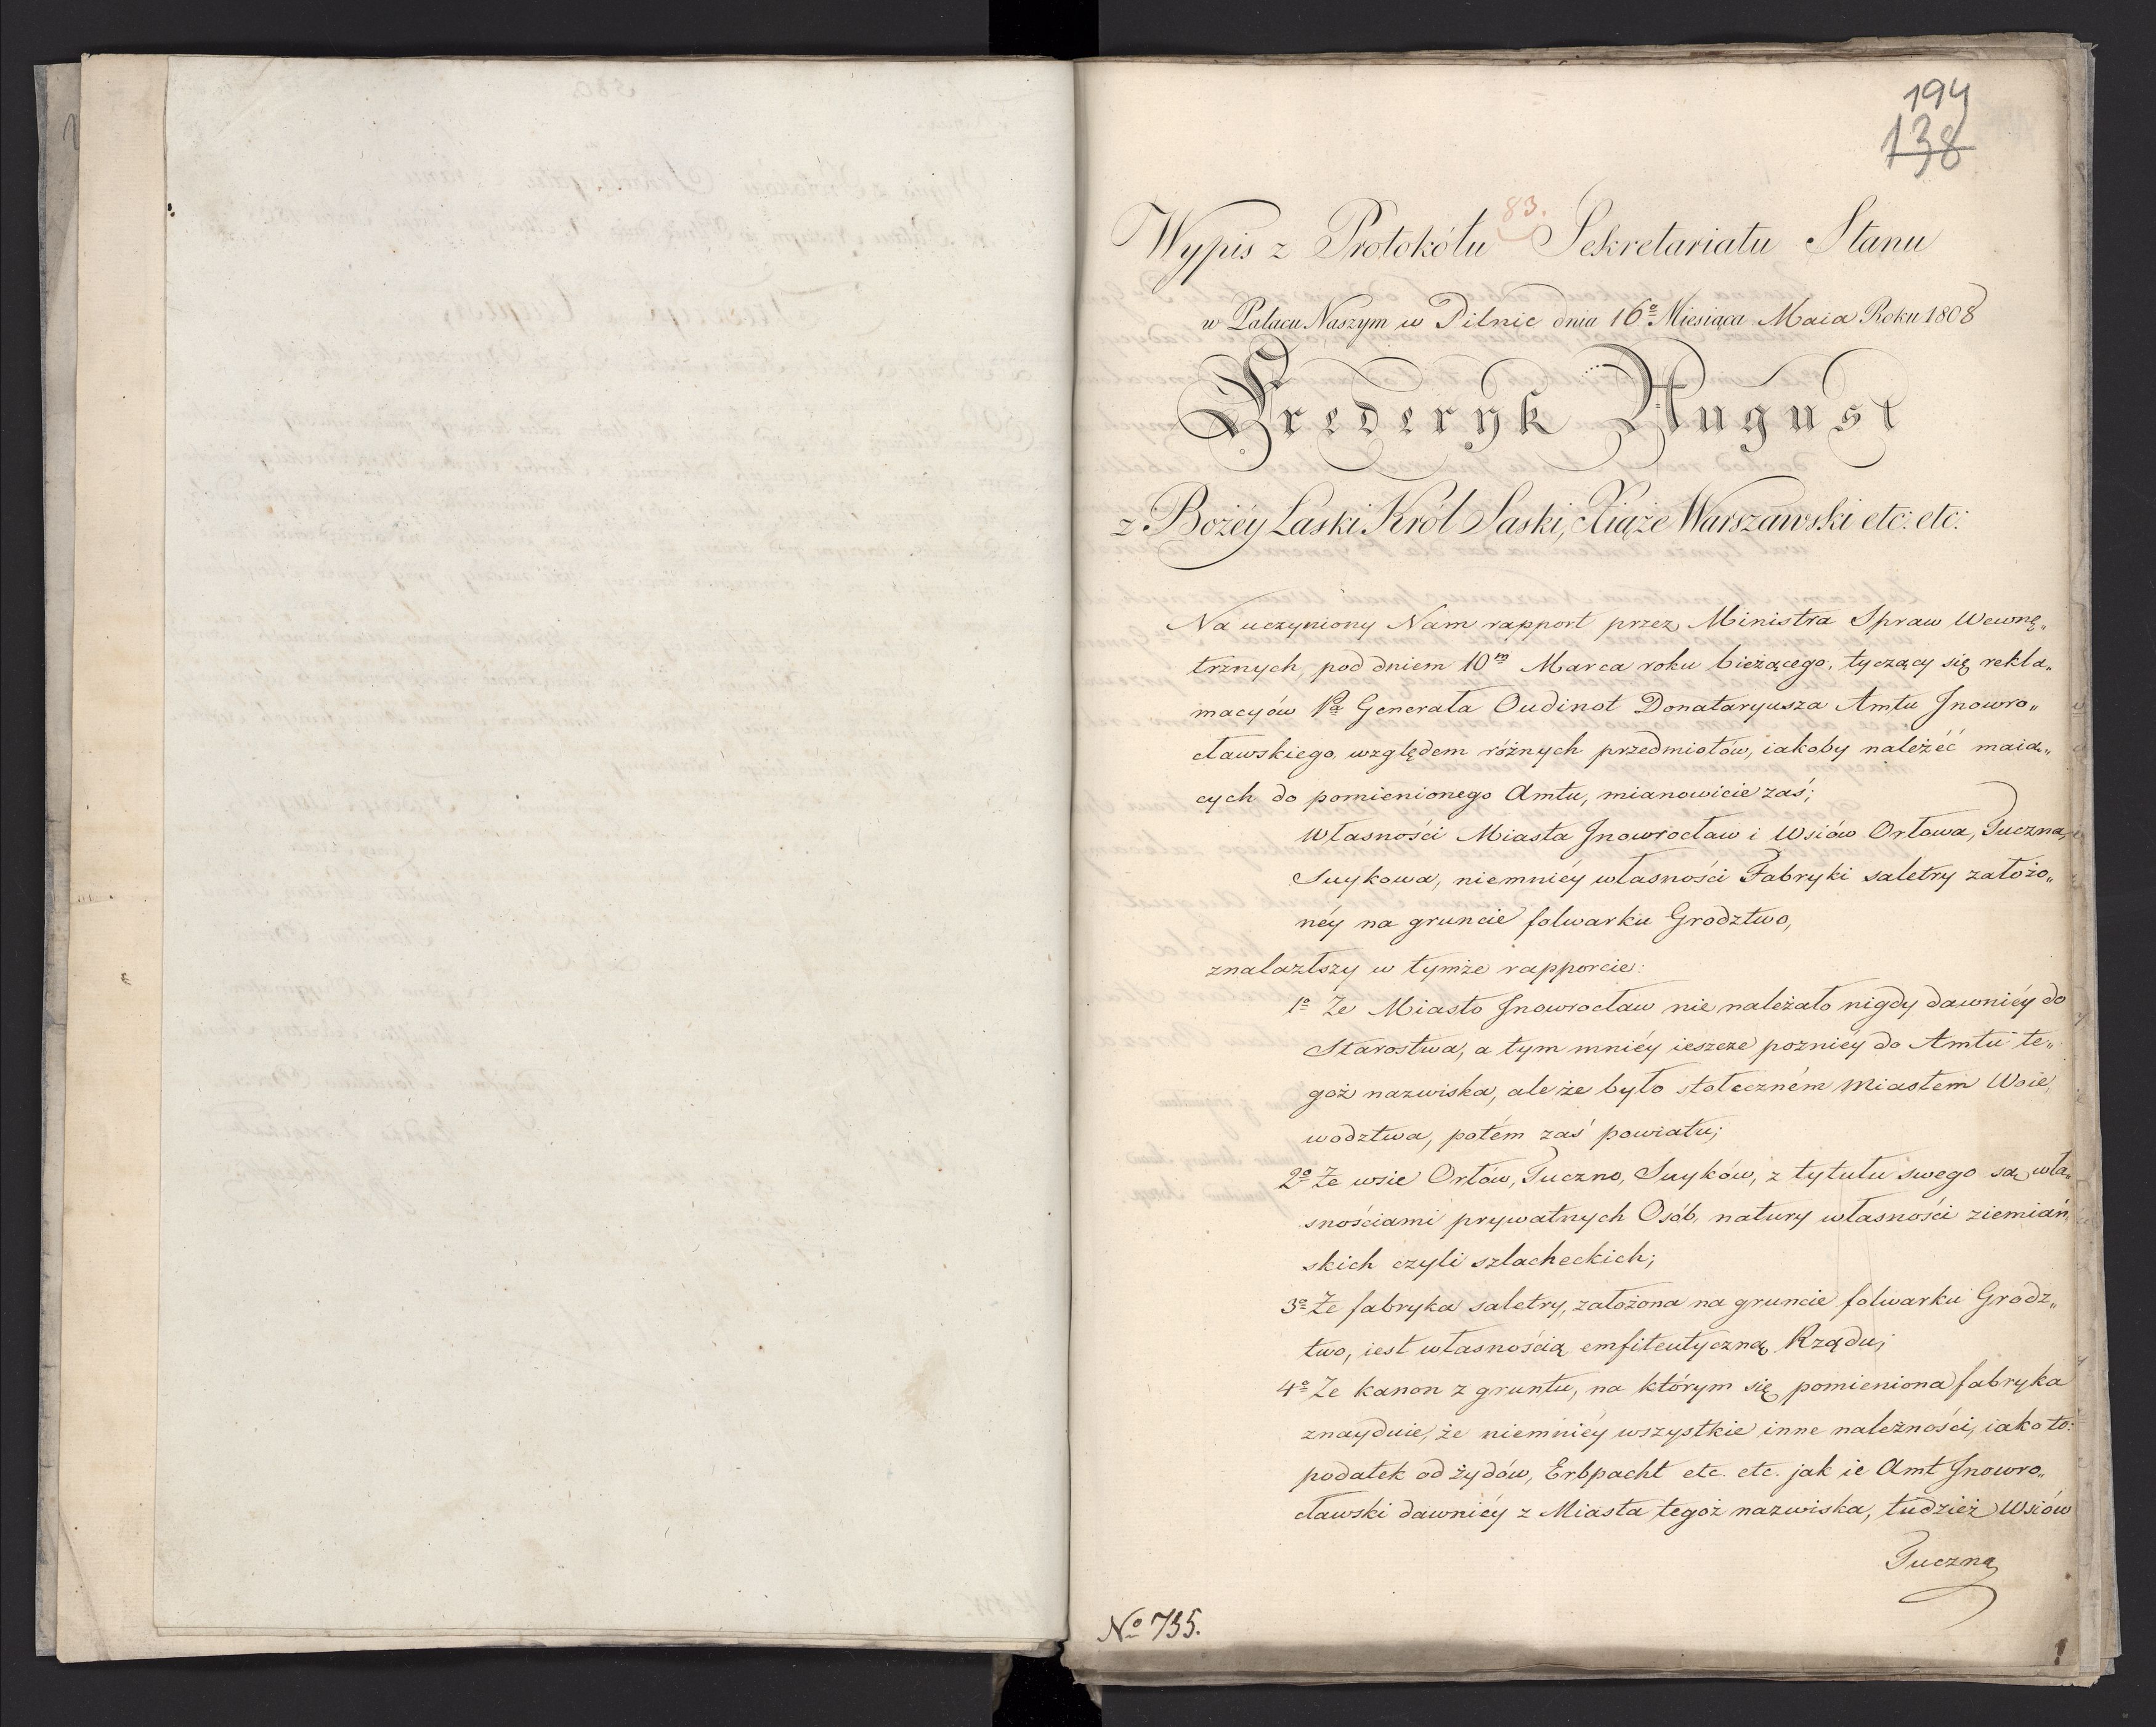 194
138
83.
Wypis z Protokółu Sekretariatu Stanu
w Pałacu Naszym w Pilnic dnia 16º Miesiąca Maia Roku 1808
Frederyk August
z Bożéy Łaski Król Saski, Xiąże Warszawski etc: etc:
Na uczyniony Nam rapport przez Ministra Spraw Wewnę„
trznych, pod dniem 10m Marca roku bieżącego, tyczący się rekla„
macyów Pa Generała Oudinot Donataryusza Amtu Jnowro„
cławskiego, względem różnych przedmiotów, iakoby należéć maią„
cych do pomienionego Amtu, mianowicie zaś;
Własności Miasta Jnowrocław i Wsiów Orłowa, Tuczna,
Suykowa, niemniéy własności Fabryki saletry założo„
néy na gruncie folwarku Grodztwo,
znalazłszy w tymże rapporcie:
1º Że Miasto Jnowrocław nie należało nigdy dawniéy do
Starostwa, a tym mniéy ieszcze pozniéy do Amtu te„
goż nazwiska, ale że było stołeczném Miastem Woie„
wodztwa, potém zaś powiatu;
2º Że wsie Orłów, Tuczno, Suyków, z tytułu swego są wła„
snościami prywatnych Osób, natury własności ziemiań„
skich czyli szlacheckich;
3º Że fabryka saletry, założona na gruncie folwarku Grodz„
two, iest własnością emfiteutyczną Rządu;
4º Że kanon z gruntu, na którym się pomieniona fabryka
znayduie, że niemniéy wszystkie inne należności, iako to:
podatek od żydów, Erbpacht etc. etc. jak ie Amt Jnowro„
cławski dawniéy z Miasta tegoż nazwiska, tudzież Wsiów
Tuczna
Nº 735.